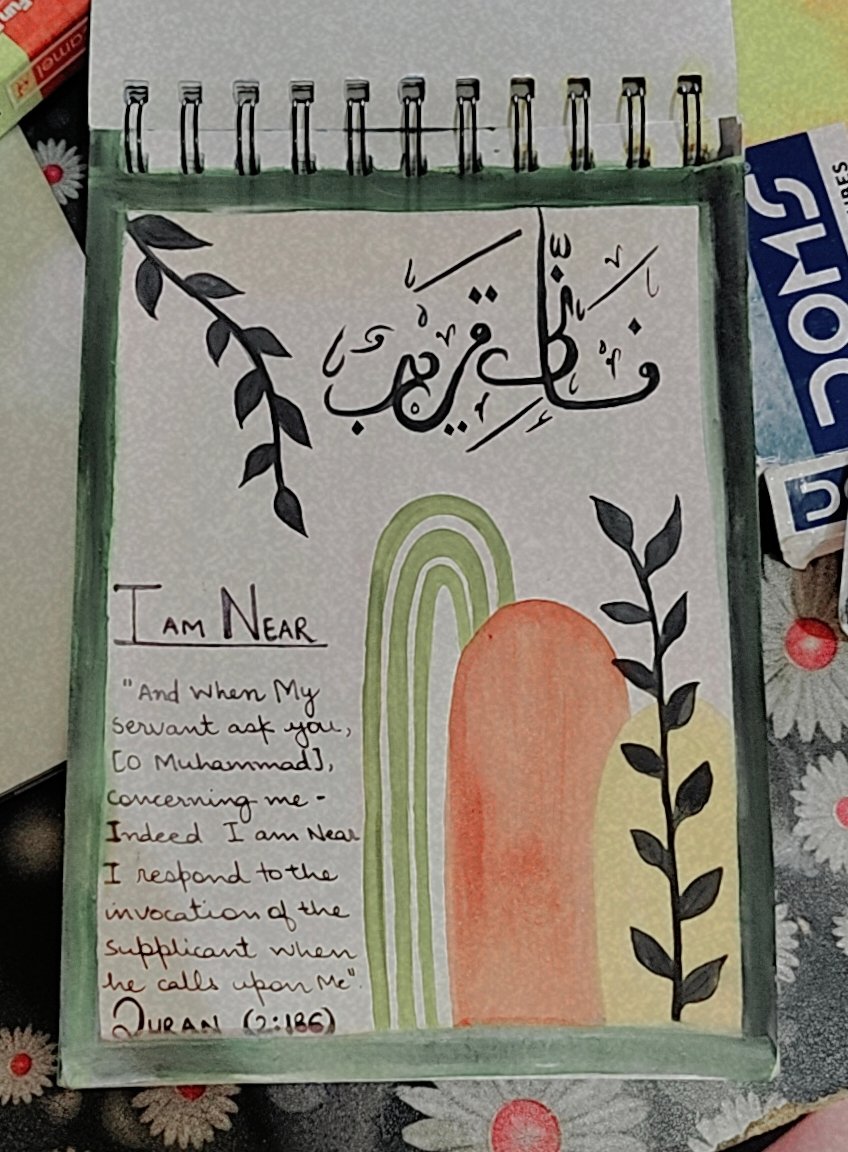 فَإِنِّي قَرِيبٌ
I AM NEAR
"And when My
servant ask you,
[O Muhammad],
concerning me -
Indeed I am Near
I respond to the
invocation of the
supplicant when
he calls upon Me".
QURAN (2:186)
DOMS
camel